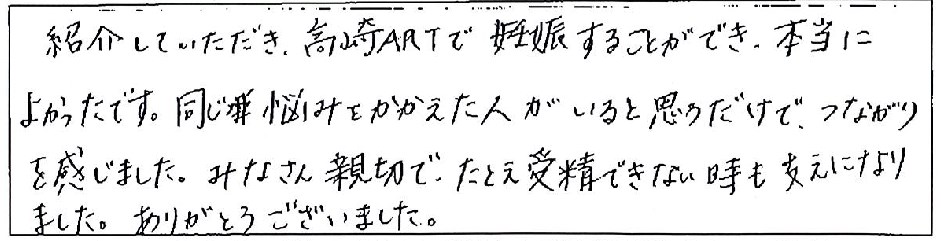 紹介していただき、高崎ARTで妊娠することができ、本当に
よかったです。同じ悩みをかかえた人がいると思うだけで、つながり
を感じました。みなさん親切で、たとえ受精できない時も支えになり
ました。ありがとうございました。